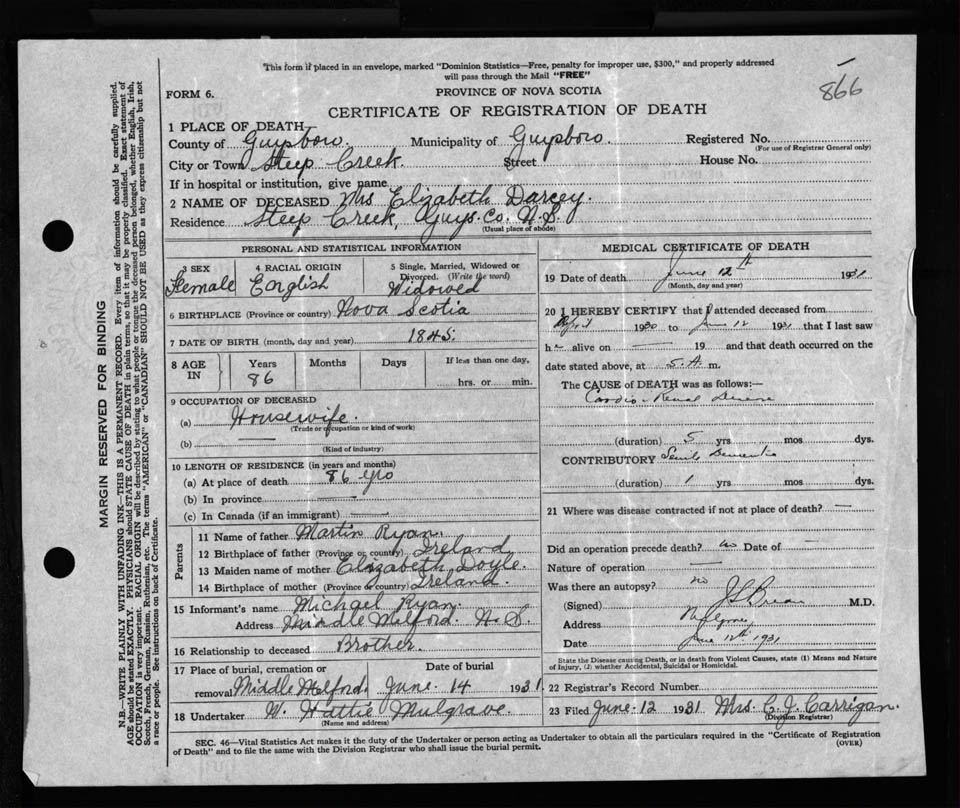 This form if placed in an envelope, marked "Dominion Statistics—Free, penalty for improper use, $300," and properly addressed
will pass through the Mail "FREE"
866
FORM 6.
PROVINCE OF NOVA SCOTIA
CERTIFICATE OF REGISTRATION OF DEATH
1 PLACE OF DEATH
County of Guysboro. Municipality of Guysboro. Registered No.
(For use of Registrar General only)
City or Town Steep Creek. Street House No.
If in hospital or institution, give name
2 NAME OF DECEASED Mrs Elizabeth Darcey.
Residence Steep Creek, Guys. Co. N.S.
(Usual place of abode)
PERSONAL AND STATISTICAL INFORMATION
3 SEX 4 RACIAL ORIGIN 5 Single, Married, Widowed or
Divorced. (Write the word)
Female English Widowed
6 BIRTHPLACE (Province or country) Nova Scotia
7 DATE OF BIRTH (month, day and year) 1845.
8 AGE IN Years Months Days If less than one day,
86 hrs. or min.
9 OCCUPATION OF DECEASED
(a) Housewife.
(Trade or occupation or kind of work)
(b) —
(Kind of industry)
10 LENGTH OF RESIDENCE (in years and months)
(a) At place of death 86 yrs
(b) In province —
(c) In Canada (if an immigrant) —
Parents
11 Name of father Martin Ryan.
12 Birthplace of father (Province or country) Ireland
13 Maiden name of mother Elizabeth Doyle.
14 Birthplace of mother (Province or country) Ireland.
15 Informant's name Michael Ryan.
Address Middle Melford. N.S.
16 Relationship to deceased Brother.
17 Place of burial, cremation or Date of burial
removal Middle Melford. June 14 1931.
18 Undertaker W. Hattie Mulgrave.
(Name and address)
MEDICAL CERTIFICATE OF DEATH
19 Date of death June 12th 1931
(Month, day and year)
20 I HEREBY CERTIFY that I attended deceased from
April 1930 to June 12 1931 that I last saw
h alive on — 19 and that death occurred on the
date stated above, at 5.A. m.
The CAUSE of DEATH was as follows:—
Cardio-Renal Disease
(duration) 5 yrs mos dys.
CONTRIBUTORY Senile Dementia
(duration) 1 yrs mos dys.
21 Where was disease contracted if not at place of death? —
Did an operation precede death? no Date of —
Nature of operation —
Was there an autopsy? no
(Signed) M.D.
Address Mulgrave
Date June 12th 1931
State the Disease causing Death, or in death from Violent Causes, state (1) Means and Nature
of Injury, (2) whether Accidental, Suicidal or Homicidal.
22 Registrar's Record Number
23 Filed June 12 1931 Mrs. C. J. Carrigan.
(Division Registrar)
SEC. 46—Vital Statistics Act makes it the duty of the Undertaker or person acting as Undertaker to obtain all the particulars required in the "Certificate of Registration
of Death" and to file the same with the Division Registrar who shall issue the burial permit. (OVER)
MARGIN RESERVED FOR BINDING
N.B.—WRITE PLAINLY WITH UNFADING INK—THIS IS A PERMANENT RECORD. Every item of information should be carefully supplied.
AGE should be stated EXACTLY. PHYSICIANS should STATE CAUSE OF DEATH in plain terms, so that it may be properly classified. Exact statement of
OCCUPATION is very important. RACIAL ORIGIN will be described by stating to what people or tongue the deceased person belonged, whether English, Irish,
Scotch, French, German, Russian, Ruthenian, etc. The terms "AMERICAN" or "CANADIAN" SHOULD NOT BE USED as they express citizenship but not
a race or people. See instructions on back of Certificate.